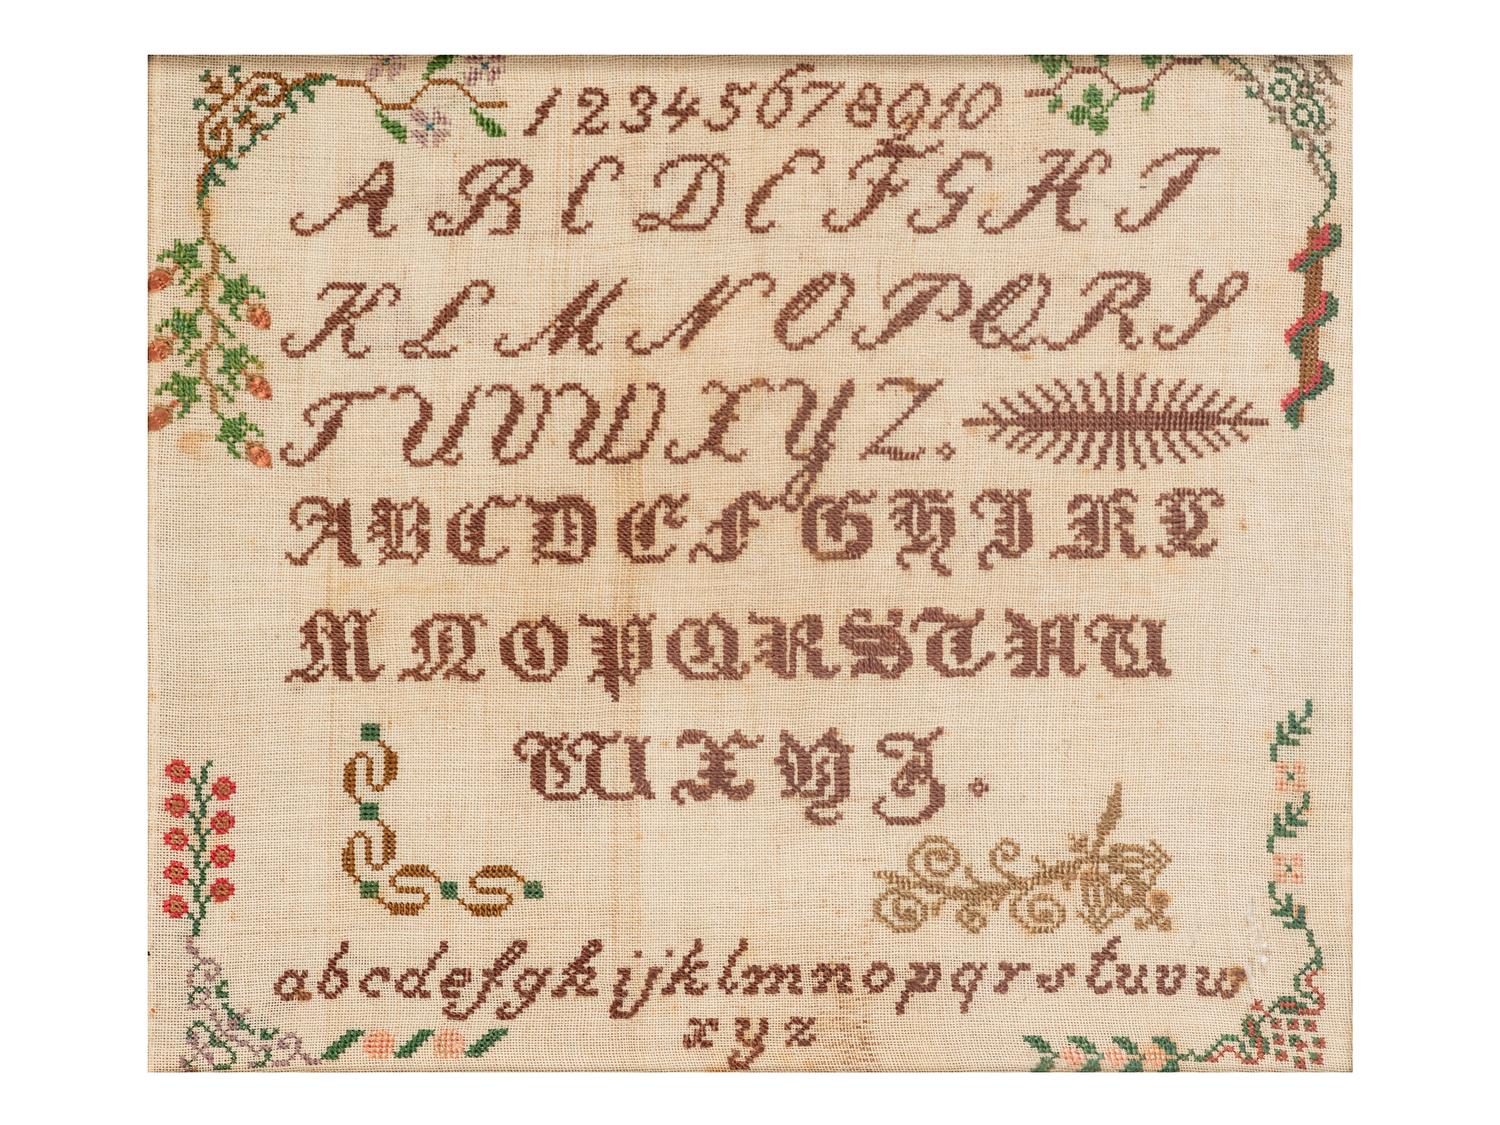 1 2 3 4 5 6 7 8 9 10
A B C D E F G H I
K L M N O P Q R S
T U V W X Y Z.
A B C D E F G H I K L
M N O P Q R S T U V
W X Y Z.
a b c d e f g h i j k l m n o p q r s t u v w
x y z